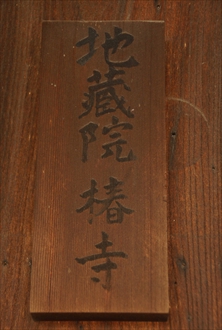 地藏院椿寺